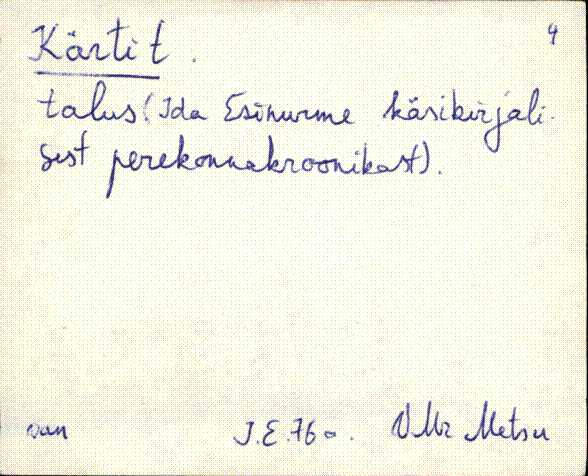 4
Kärtit.
talus (Ida Esinurme käsikirjali-
sest perekonnakroonikast).
van J.E. 76 a. VMr Metsu